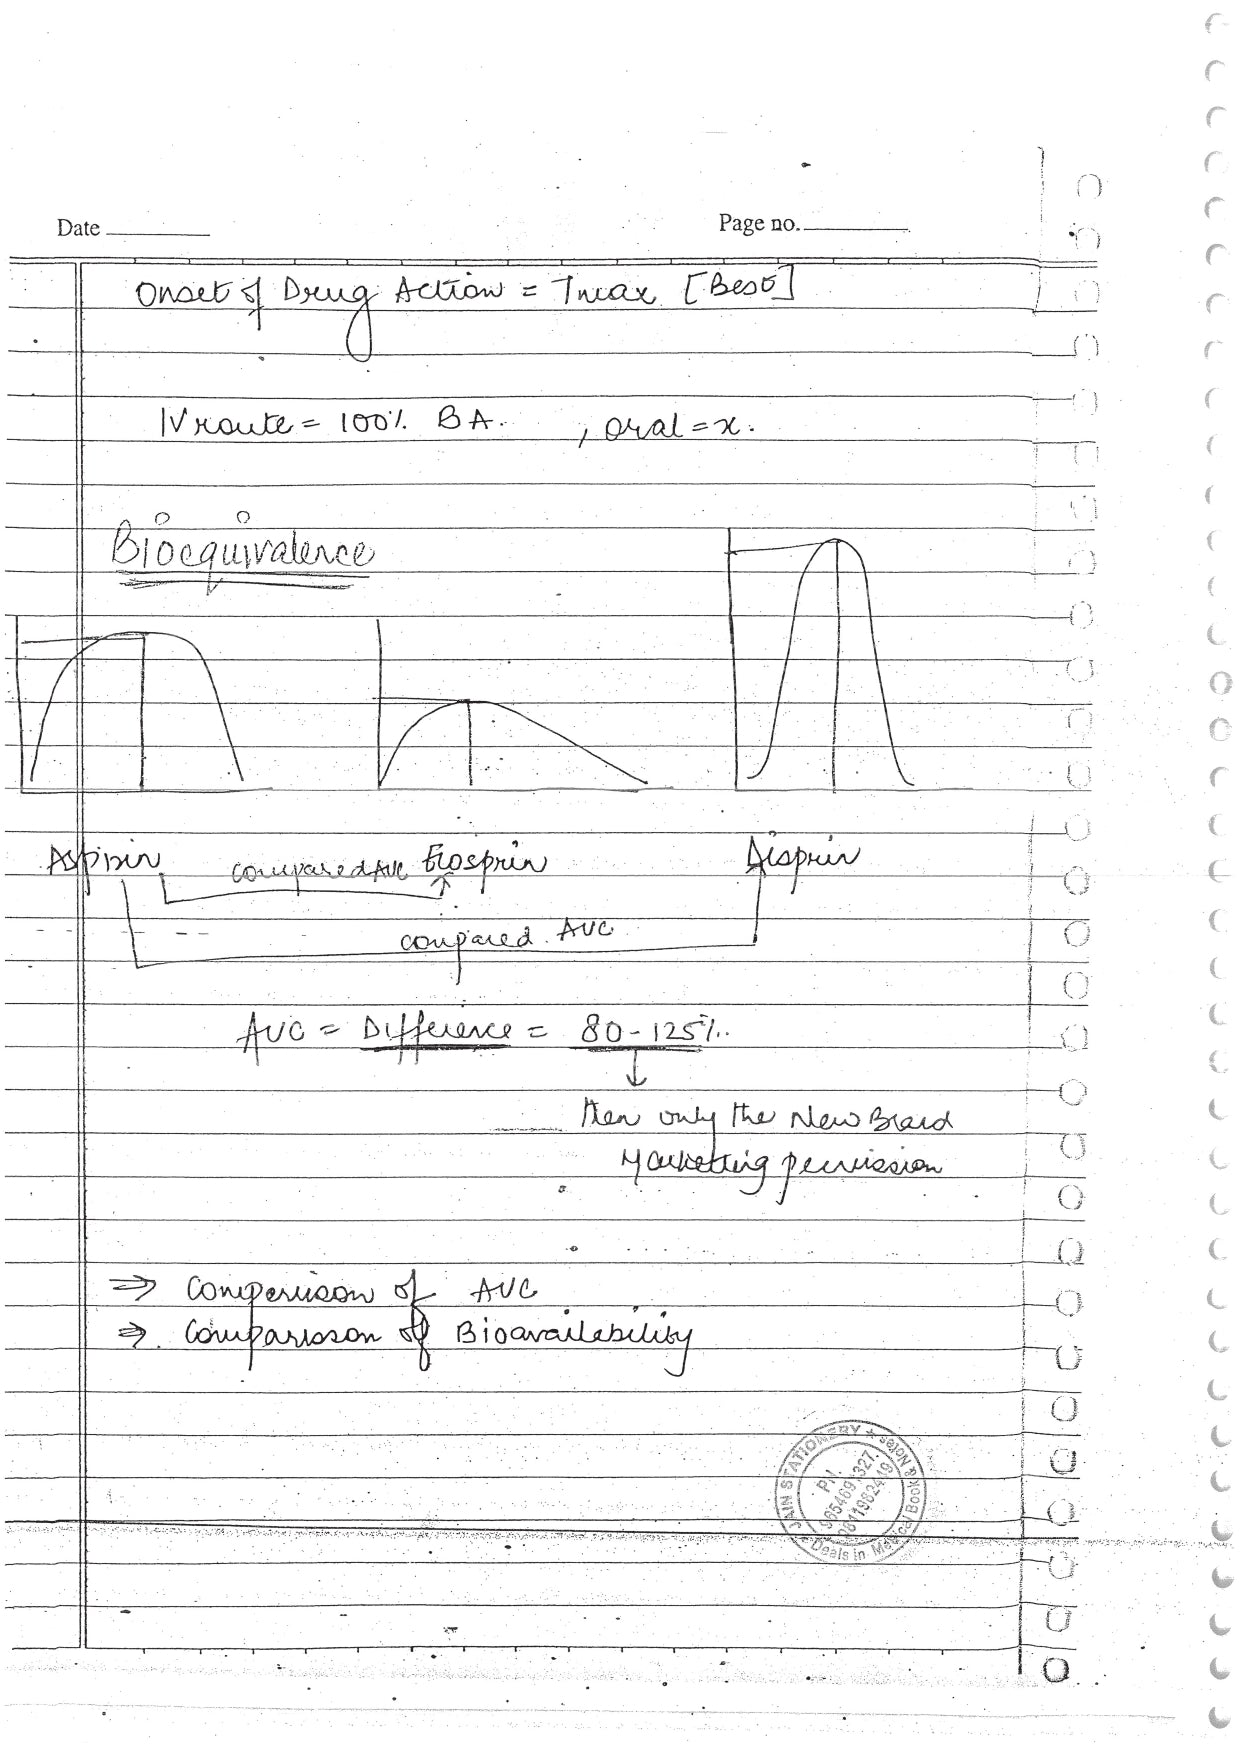 Date
Page no.
Onset of Drug Action = Tmax [Best]
IV route = 100% BA. , oral = x.
Bioequivalence
Aspirin compared AUC Ecosprin Disprin
compared AUC
AUC = Difference = 80-125%.
then only the New Brand
Marketting permission
⇒ Comperison of AUC
⇒ Comparisson of Bioavailability
JAIN STATIONERY ★
Deals in Medical Book & Notes